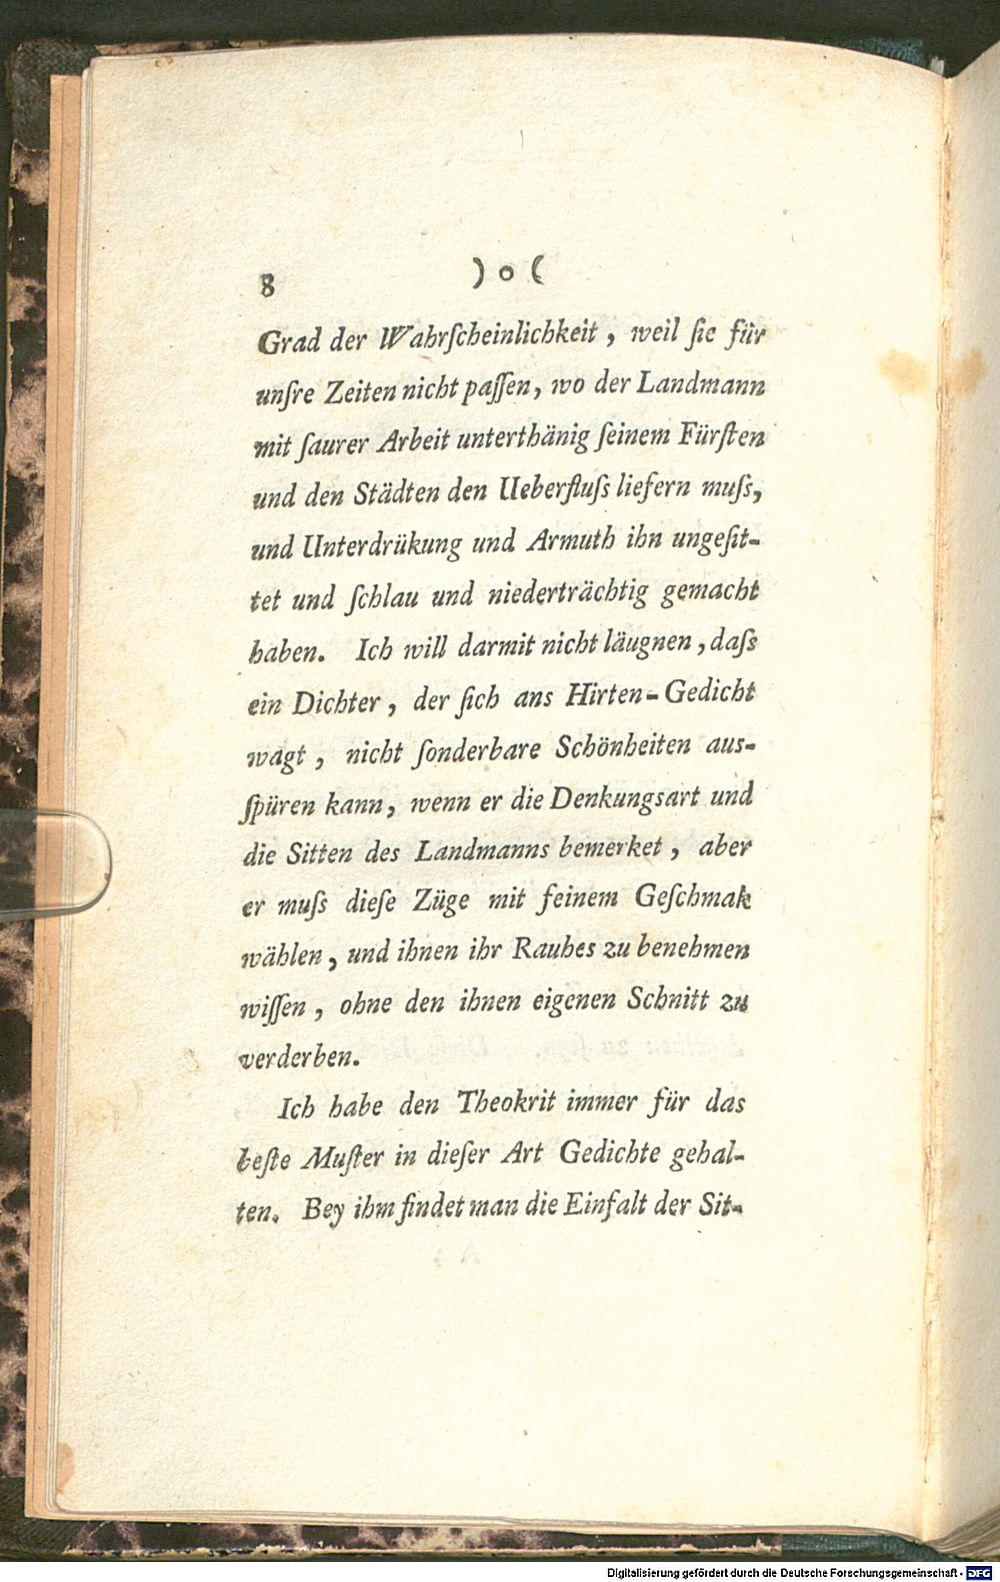 8
) o (
Grad der Wahrſcheinlichkeit , weil ſie für
unſre Zeiten nicht paſſen, wo der Landmann
mit ſaurer Arbeit unterthänig ſeinem Fürſten
und den Städten den Ueberfluſs liefern muſs,
und Unterdrükung und Armuth ihn ungeſit-
tet und ſchlau und niederträchtig gemacht
haben. Ich will darmit nicht läugnen , daſs
ein Dichter , der ſich ans Hirten-Gedicht
wagt , nicht ſonderbare Schönheiten aus-
ſpüren kann, wenn er die Denkungsart und
die Sitten des Landmanns bemerket , aber
er muſs dieſe Züge mit feinem Geſchmak
wählen , und ihnen ihr Rauhes zu benehmen
wiſſen , ohne den ihnen eigenen Schnitt zu
verderben.
Ich habe den Theokrit immer für das
beſte Muſter in dieſer Art Gedichte gehal-
ten. Bey ihm findet man die Einfalt der Sit-
Digitalisierung gefördert durch die Deutsche Forschungsgemeinschaft - DFG